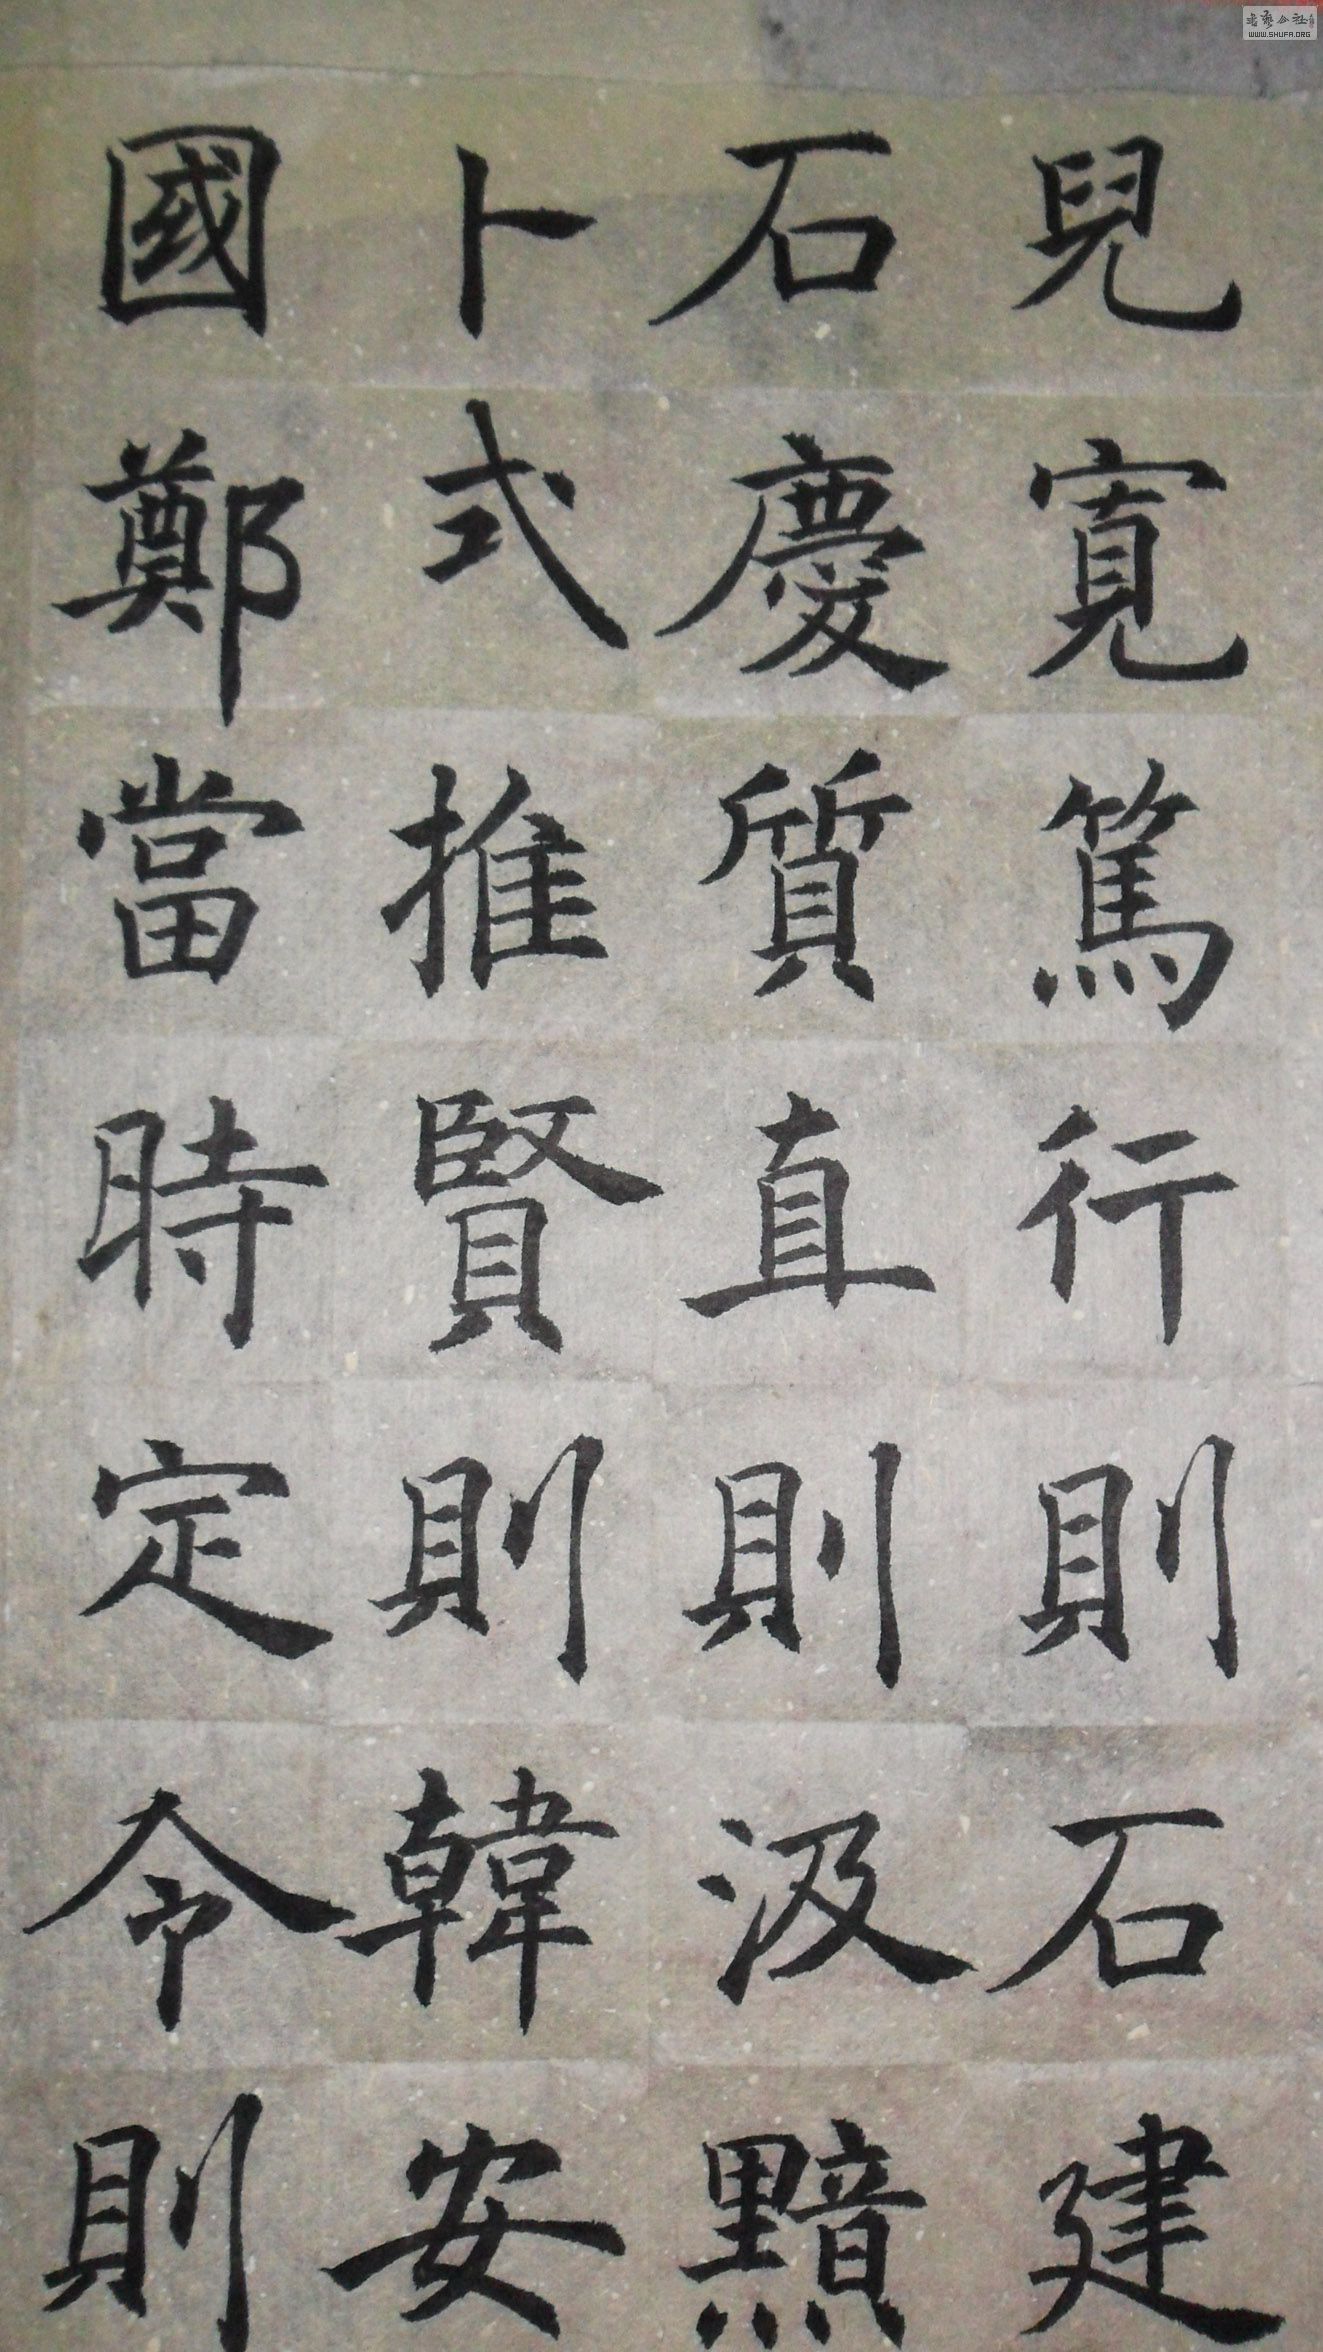 兒寬篤行則石建
石慶質直則汲黯
卜式推賢則韓安
國鄭當時定令則
WWW.SHUFA.ORG